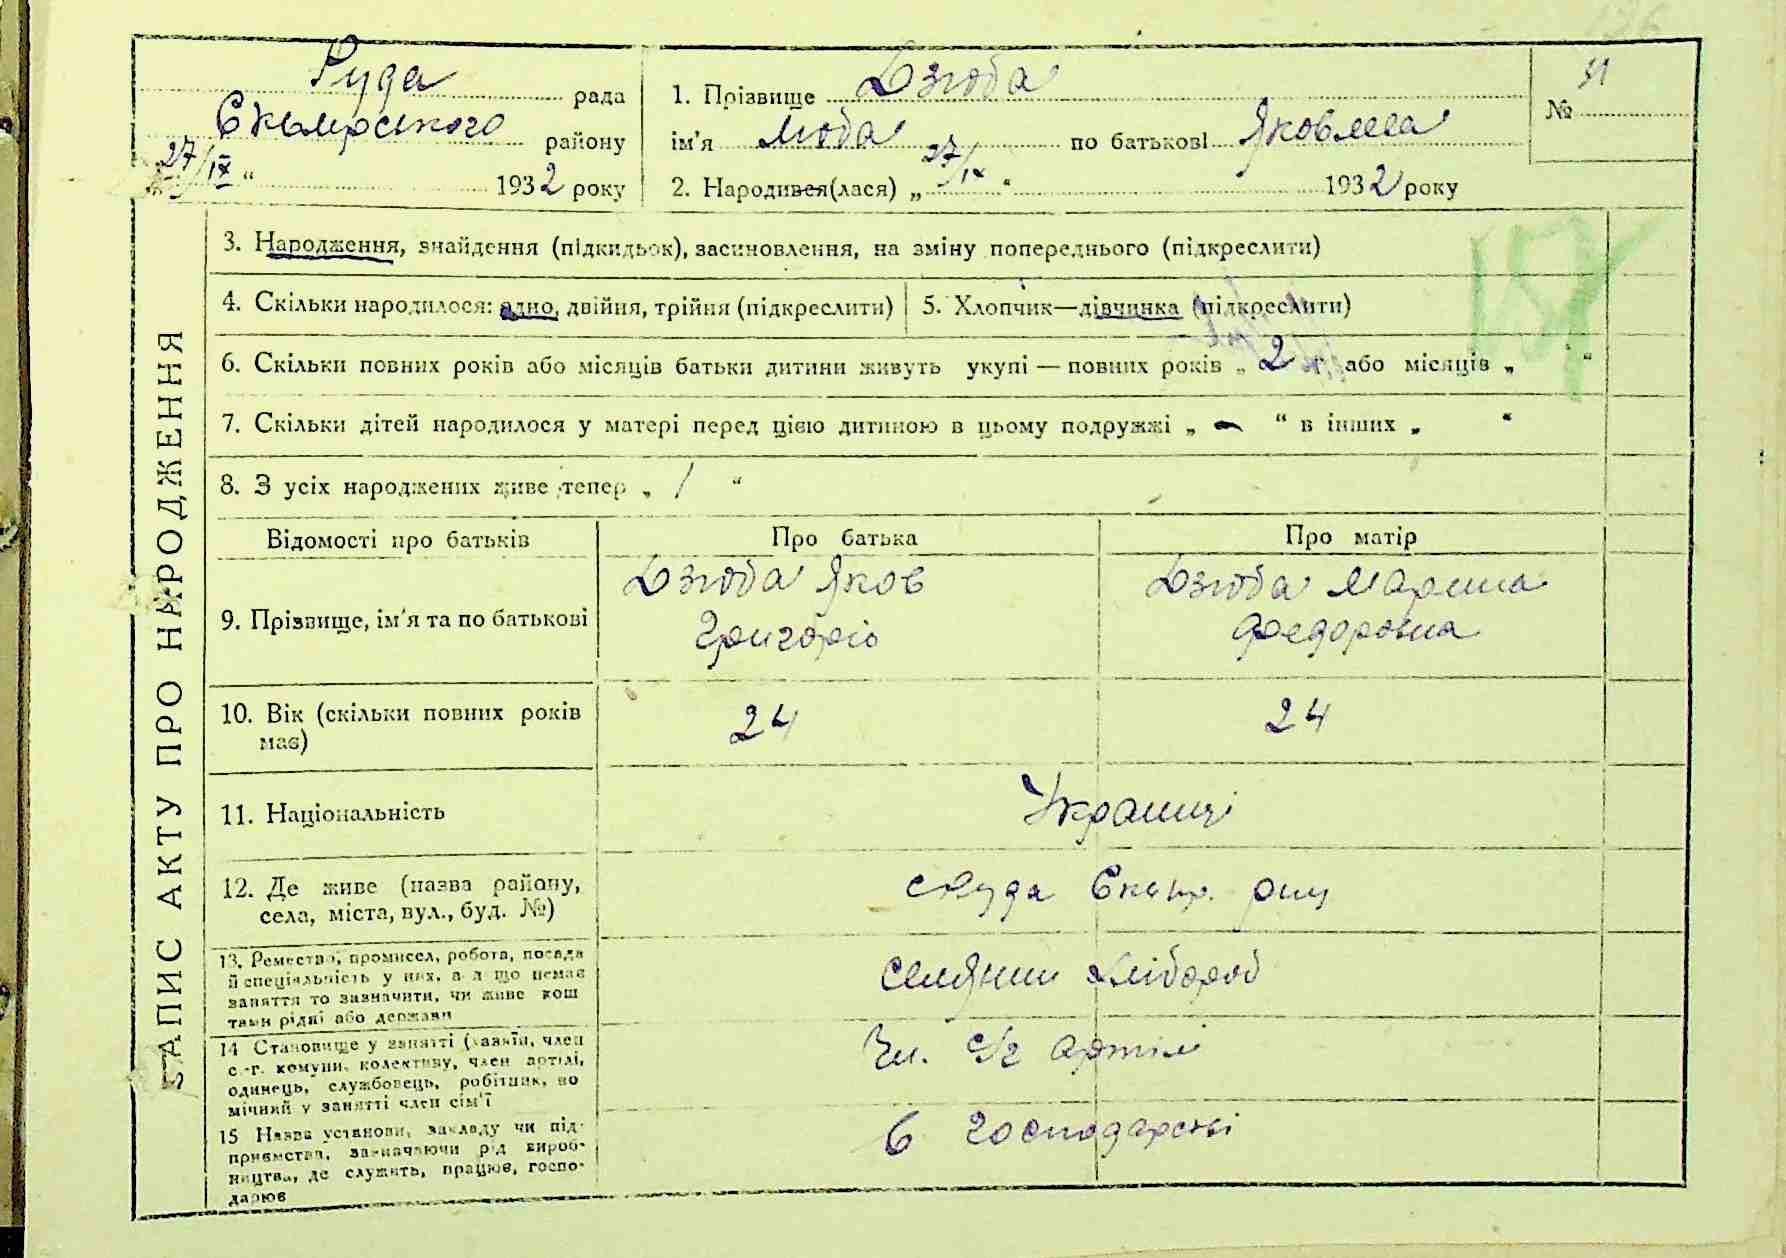 126
Руда рада
Сквирського району
27/IX " 1932 року
1. Прізвище Дзюба
ім'я Люба по батькові Яковлева
2. Народився(лася) „ 27/IX " 1932 року
№ 51
3. Народження, знайдення (підкидьок), засиновлення, на зміну попереднього (підкреслити)
4. Скільки народилося: одно, двійня, трійня (підкреслити)
5. Хлопчик—дівчинка (підкреслити)
6. Скільки повних років або місяців батьки дитини живуть укупі — повних років „ 2 " або місяців „ "
7. Скільки дітей народилося у матері перед цією дитиною в цьому подружжі „ - " в інших „ "
8. З усіх народжених живе тепер „ 1 "
ЗАПИС АКТУ ПРО НАРОДЖЕННЯ
Відомості про батьків
Про батька
Про матір
9. Прізвище, ім'я та по батькові
Дзюба Яков
Григоріо
Дзюба Марина
Федоровна
10. Вік (скільки повних років
має)
24
24
11. Національність
Украинці
12. Де живе (назва району,
села, міста, вул., буд. №)
с Руда Сквир. рну
13. Ремество, промисел, робота, посада
й спеціяльність у них, а я що немає
заняття то зазначити, чи живе кош
тами рідні або держави
селянин хлібороб
14 Становище у занятті (хазяїн, член
с.-г. комуни, колективу, член артілі,
одинець, службовець, робітник, по
мічний у занятті член сім'ї
Чл. с/г артілі
15 Назва установи, закладу чи під-
приємства, зазначаючи рід вироб-
ництва, де служить, працює, госпо-
дарює
в господарстві